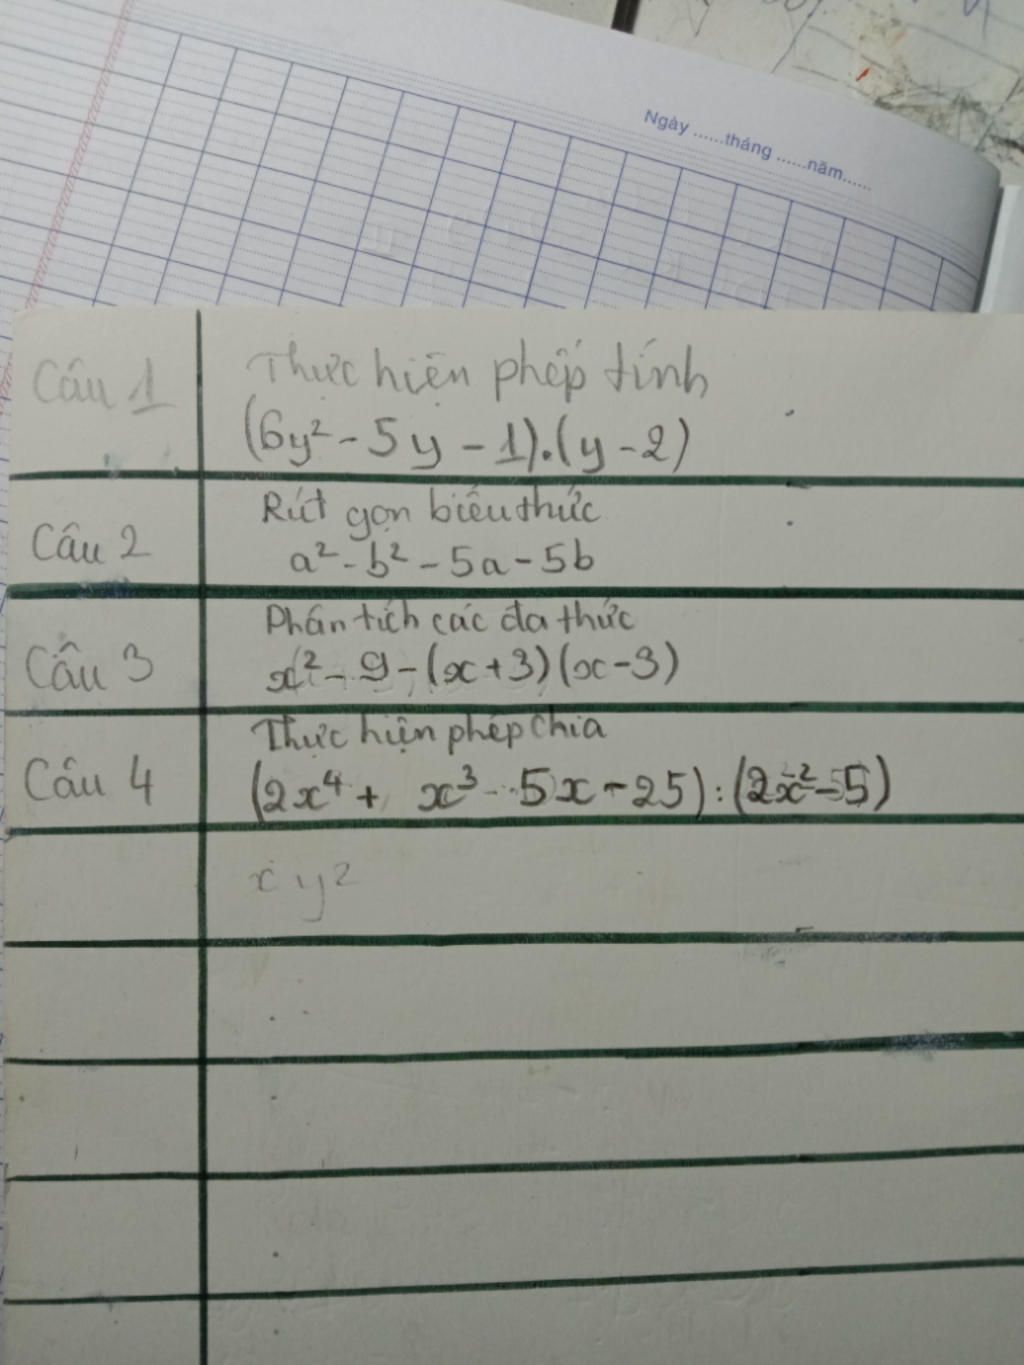 Ngày ......tháng ......năm......
Câu 1
Thực hiện phép tính
(6y² - 5y - 1).(y - 2)
Câu 2
Rút gọn biểu thức
a² - b² - 5a - 5b
Câu 3
Phân tích các đa thức
x² - 9 - (x + 3)(x - 3)
Câu 4
Thực hiện phép chia
(2x⁴ + x³ - 5x - 25) : (2x² - 5)
xy²